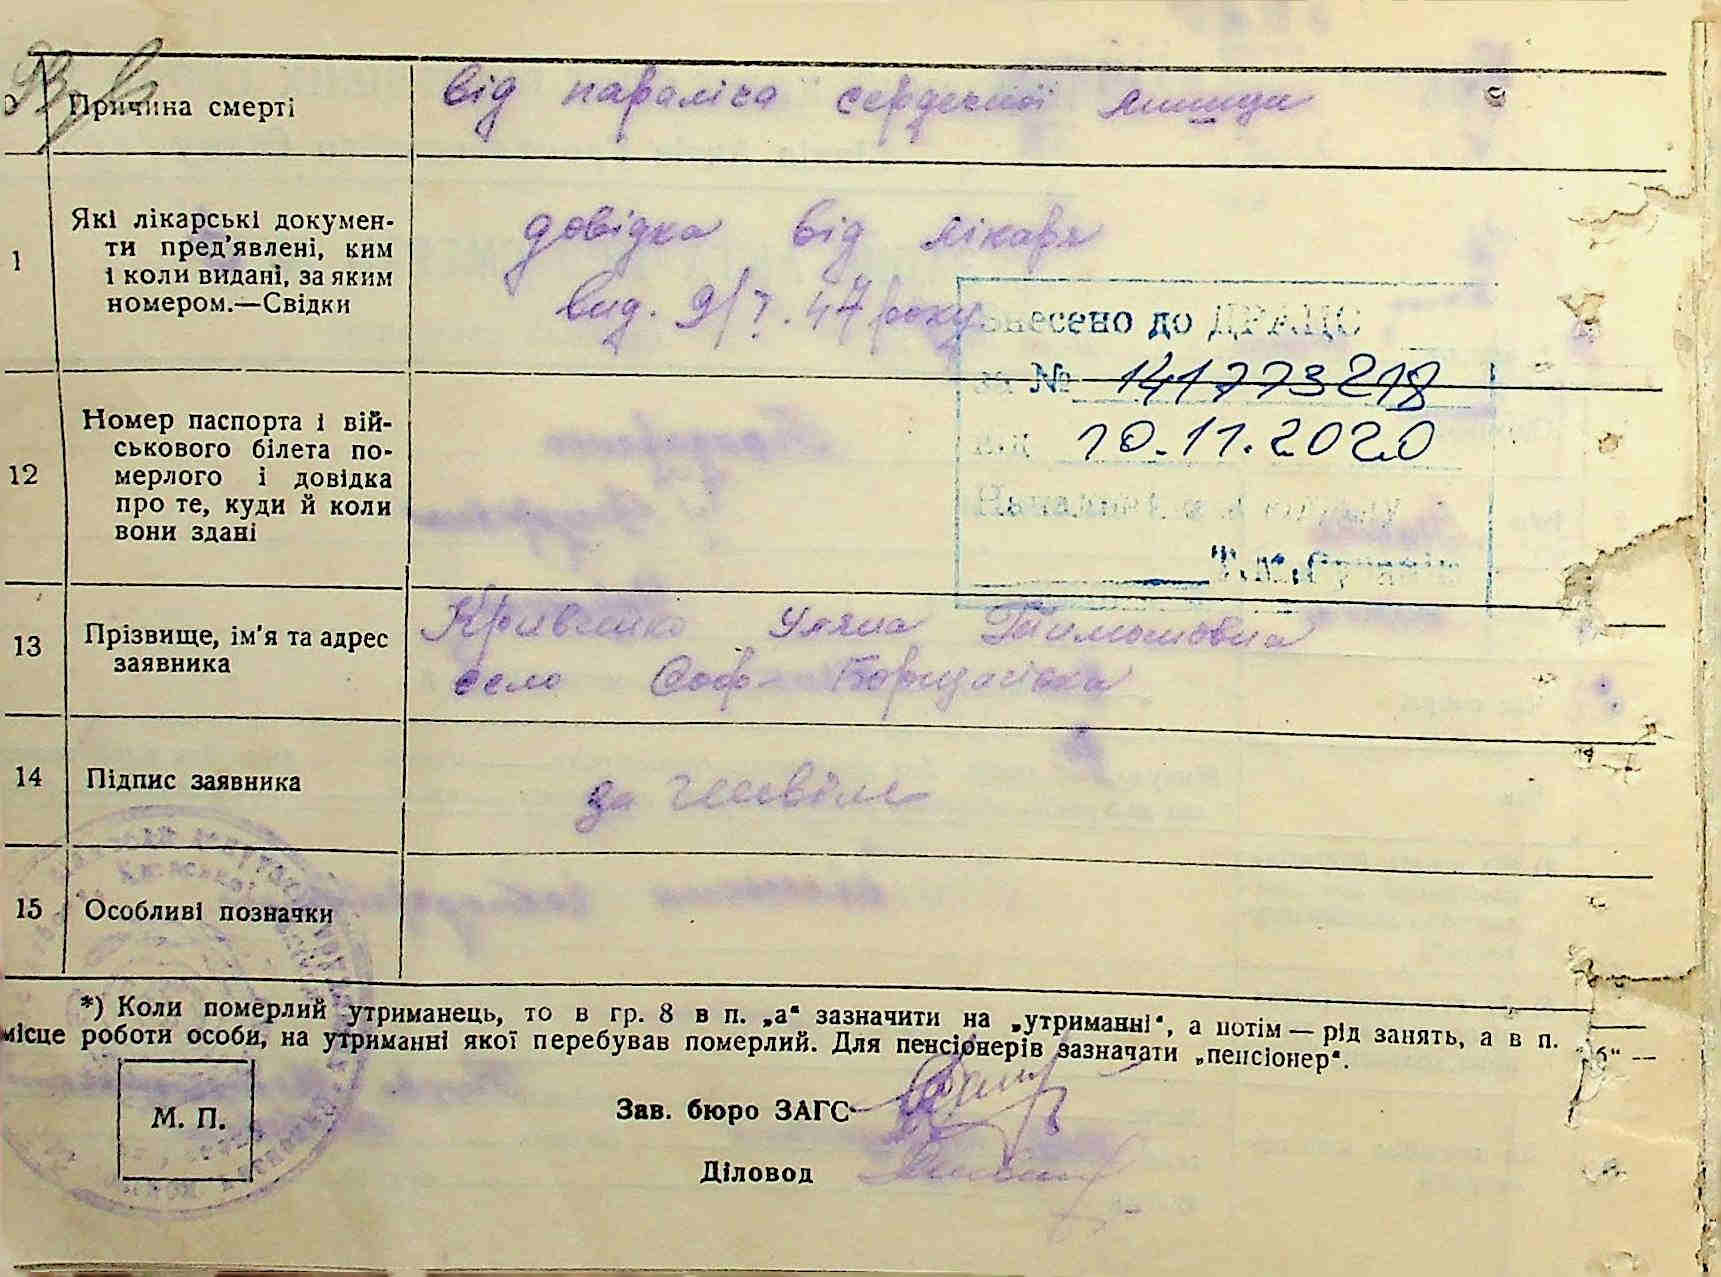 Причина смерті
від параліса сердечної мишци
1
Які лікарські докумен-
ти пред'явлені, ким
і коли видані, за яким
номером.—Свідки
довідка від лікаря
вид. 9/ . 47 року
Внесено до ДРАЦС
за № 141773218
від 10.11.2020
12
Номер паспорта і вій-
ськового білета по-
мерлого і довідка
про те, куди й коли
вони здані
13
Прізвище, ім'я та адрес
заявника
Уляна Тимошовна
село Соф Борщагівка
14
Підпис заявника
за
15
Особливі позначки
*) Коли померлий утриманець, то в гр. 8 в п. „а“ зазначити на „утриманні“, а потім — рід занять, а в п. „б“ —
місце роботи особи, на утриманні якої перебував померлий. Для пенсіонерів зазначати „пенсіонер“.
М. П.
Зав. бюро ЗАГС
Діловод